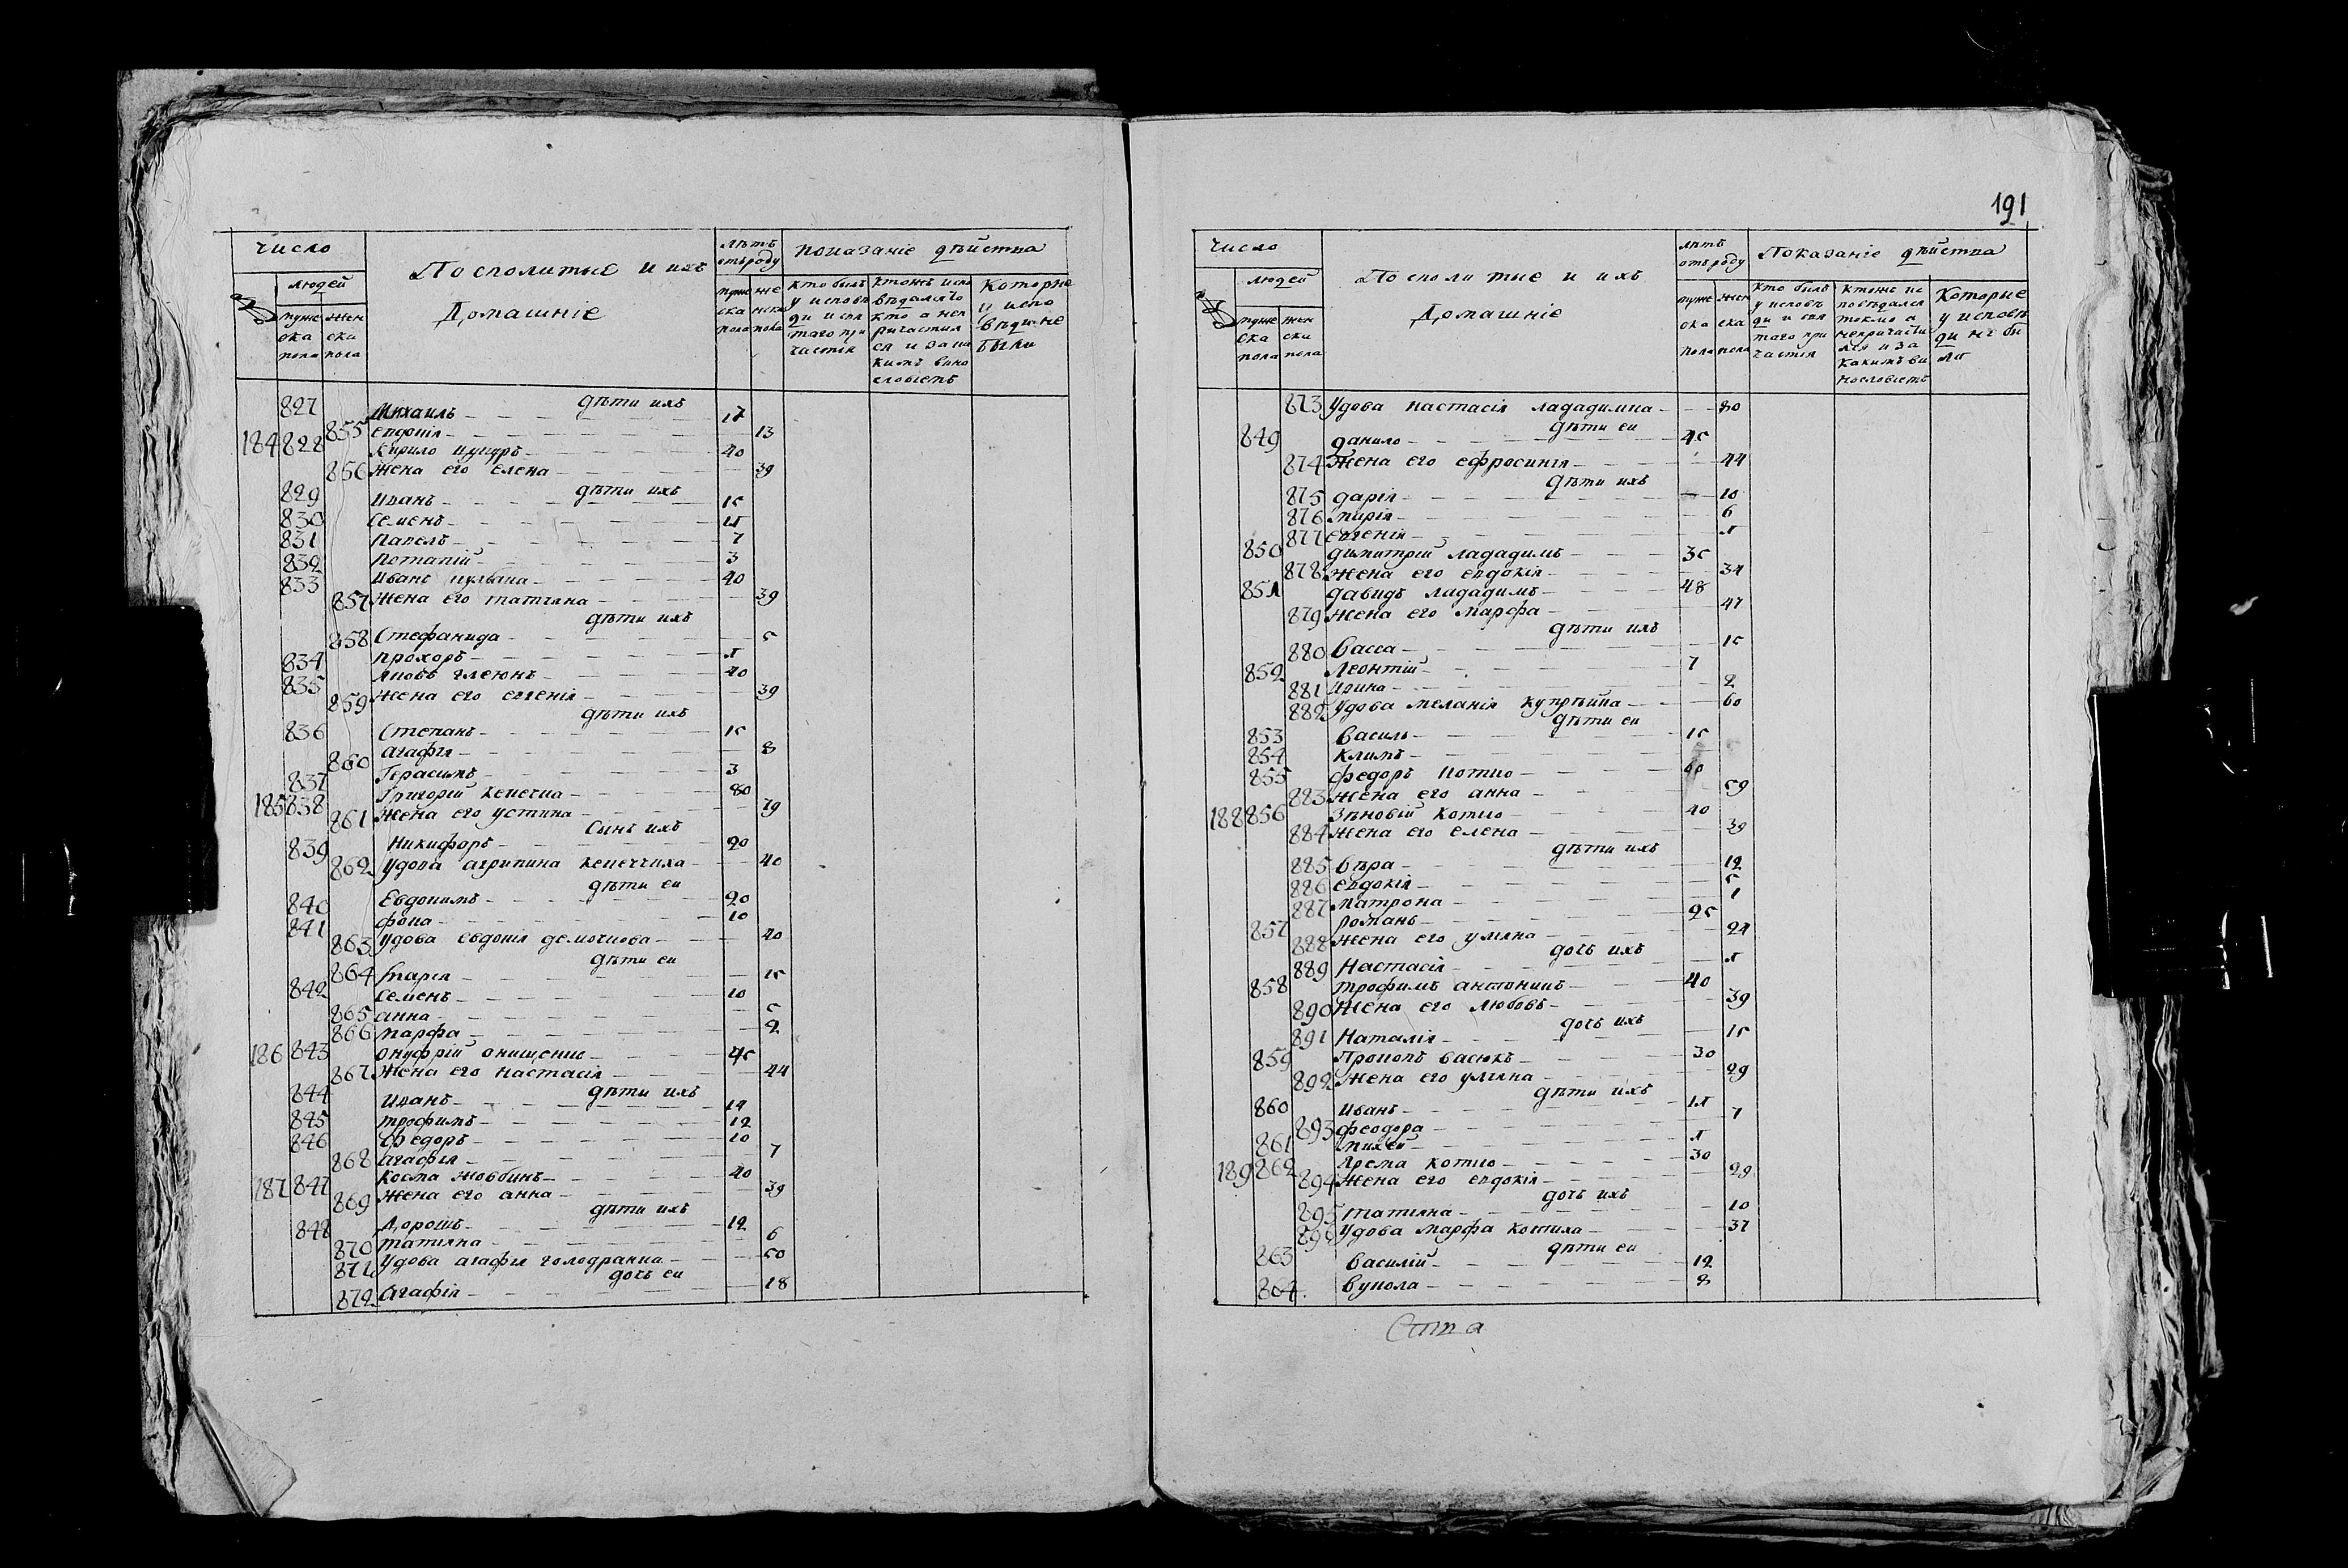 число
людей
муже ска пола
жен ска пола
Посполитые и ихъ Домашніе
лѣтъ отъ роду
муже ска пола
же нска пола
показаніе дѣйства
кто былъ у исповѣди и свя таго при частія
ктожъ испо вѣдался то кто а неп ричастил ся и за ка кимъ вино словіемъ
Которые и испо вѣди не были
дѣти ихъ
827 Михаилъ 17
855 евдокія 13
184 828 Кирило 40
856 Жена его елена 39
дѣти ихъ
829 иванъ 15
830 семенъ
831 павелъ 7
832 потапій 3
833 иванъ 40
857 Жена его татіяна 39
дѣти ихъ
858 Стефанида 5
834 прохоръ
835 яковъ 40
859 Жена его евгенія 39
дѣти ихъ
836 Степанъ 15
860 агафія 8
837 Герасимъ 3
185 838 Григорій 80
861 Жена его устина 79
Сынъ ихъ
839 Никифоръ 20
862 Удова агрипина 40
дѣти еи
840 Евдокимъ 20
841 фома 10
863 Удова евдокія 40
дѣти еи
864 марія 15
842 семенъ 10
865 анна 5
866 марфа 2
186 843 онуфрій онищенко 45
867 Жена его настасія 44
дѣти ихъ
844 иванъ 14
845 трофимъ 12
846 федоръ 10
868 агафія 7
187 847 Косма жовбинъ 40
869 Жена его анна 39
дѣти ихъ
848 Дорошъ 12
870 татіяна 6
871 Удова агафія голодранка 50
дочь еи
872 агафія 18
191
Число
людей
муже ска пола
жен ска пола
Посполитые и ихъ Домашніе
лѣтъ отъ роду
муже ска пола
жен ска пола
Показаніе дѣйства
кто былъ у исповѣ ди и свя таго при частія
ктожъ ис повѣдался токмо а непричасти лся и за какимъ ви нословіемъ
Которые у исповѣ ди не бы ли
873 Удова настасія лададимка 80
дѣти еи
849 данило 45
874 Жена его ефросинія 44
дѣти ихъ
875 дарія 10
876 марія 6
877 евгенія
850 димитрій лададимъ 35
878 Жена его евдокія 34
851 давидъ лададимъ 48
879 Жена его марфа 47
дѣти ихъ
880 васса 15
852 Леонтій 7
881 ирина 2
882 Удова меланія 60
дѣти еи
853 василь 15
854 климъ
855 федоръ котко 60
883 Жена его анна 59
188 856 Зѣновій котко 40
884 Жена его елена 39
дѣти ихъ
885 вѣра 12
886 евдокія 5
887 матрона 1
857 романъ 25
888 Жена его уляна 24
дочь ихъ
889 Настасія
858 трофимъ антонинъ 40
890 Жена его любовъ 39
дочь ихъ
891 Наталія 15
859 Прокопъ васюкъ 30
892 Жена его уляна 29
дѣти ихъ
860 иванъ
893 феодора 7
861 михей
189 862 Ярема котко 30
894 Жена его евдокія 29
дочь ихъ
895 татіяна 10
896 Удова марфа 37
дѣти еи
863 василій 12
864 вукола 8